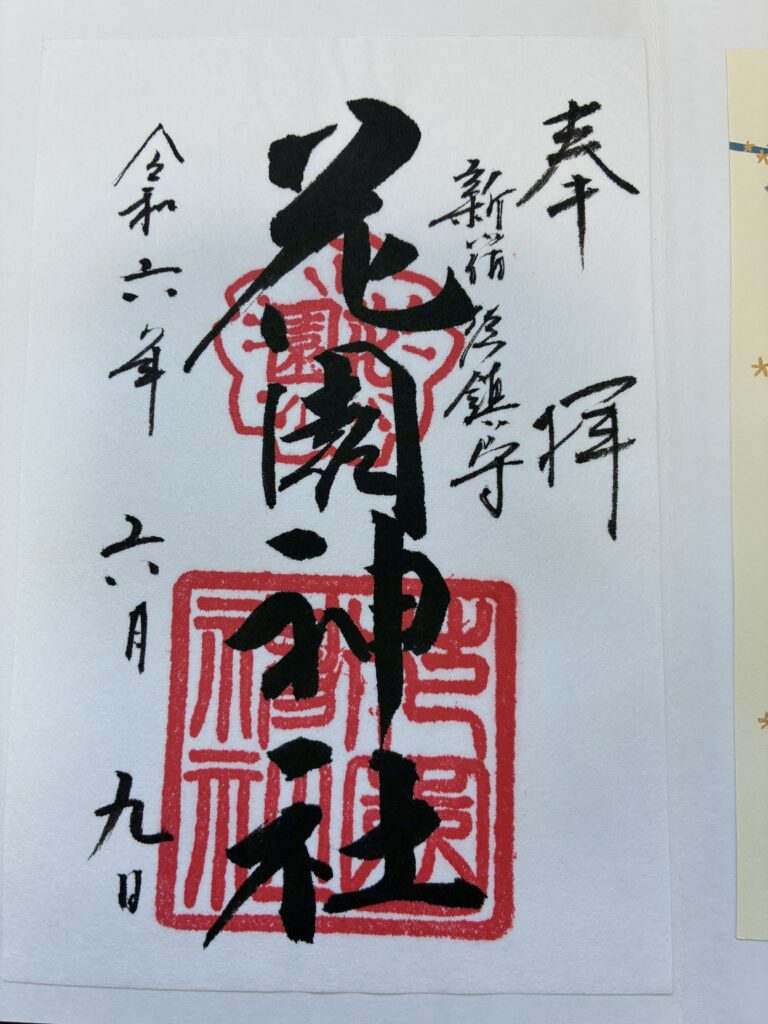 奉拝
新宿総鎮守
花園神社
花園
花園神社
令和六年 六月 九日